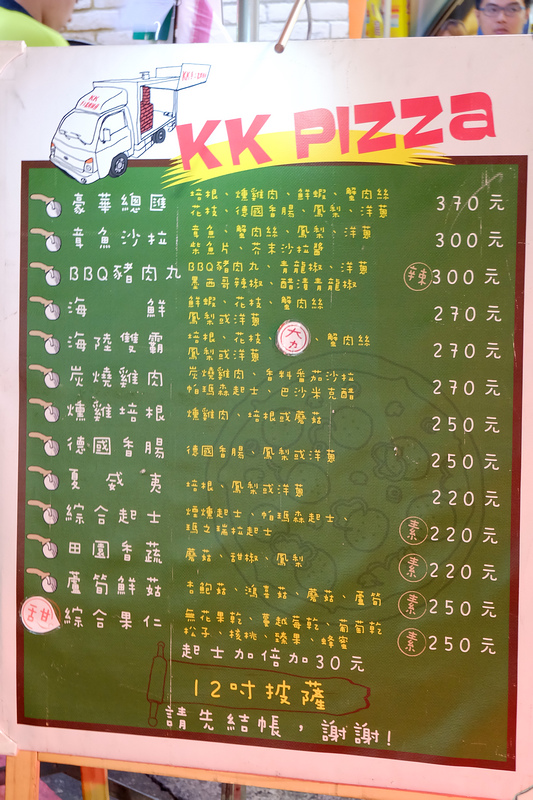 KK PIZZA
KK PIZZA
KK PIZZA
豪華總匯 培根、燻雞肉、鮮蝦、蟹肉絲 370元
花枝、德國香腸、鳳梨、洋蔥
章魚沙拉 章魚、蟹肉絲、鳳梨、洋蔥 300元
柴魚片、芥末沙拉醬
BBQ豬肉丸 BBQ豬肉丸、青龍椒、洋蔥 辣 300元
墨西哥辣椒、醋漬青龍椒
海鮮 鮮蝦、花枝、蟹肉絲 270元
鳳梨或洋蔥
海陸雙霸 培根、花枝、蟹肉絲 270元
鳳梨或洋蔥
炭燒雞肉 炭燒雞肉、香料番茄沙拉 270元
帕瑪森起士、巴沙米克醋
燻雞培根 燻雞肉、培根或蘑菇 250元
德國香腸 德國香腸、鳳梨或洋蔥 250元
夏威夷 培根、鳳梨或洋蔥 220元
綜合起士 煙燻起士、帕瑪森起士、 素 220元
瑪之瑞拉起士
田園香蔬 蘑菇、甜椒、鳳梨 素 220元
蘆筍鮮菇 杏鮑菇、鴻喜菇、蘑菇、蘆筍 素 250元
甜 綜合果仁 無花果乾、蔓越莓乾、葡萄乾 素 250元
松子、核桃、腰果、蜂蜜
起士加倍加30元
12吋披薩
請先結帳，謝謝!